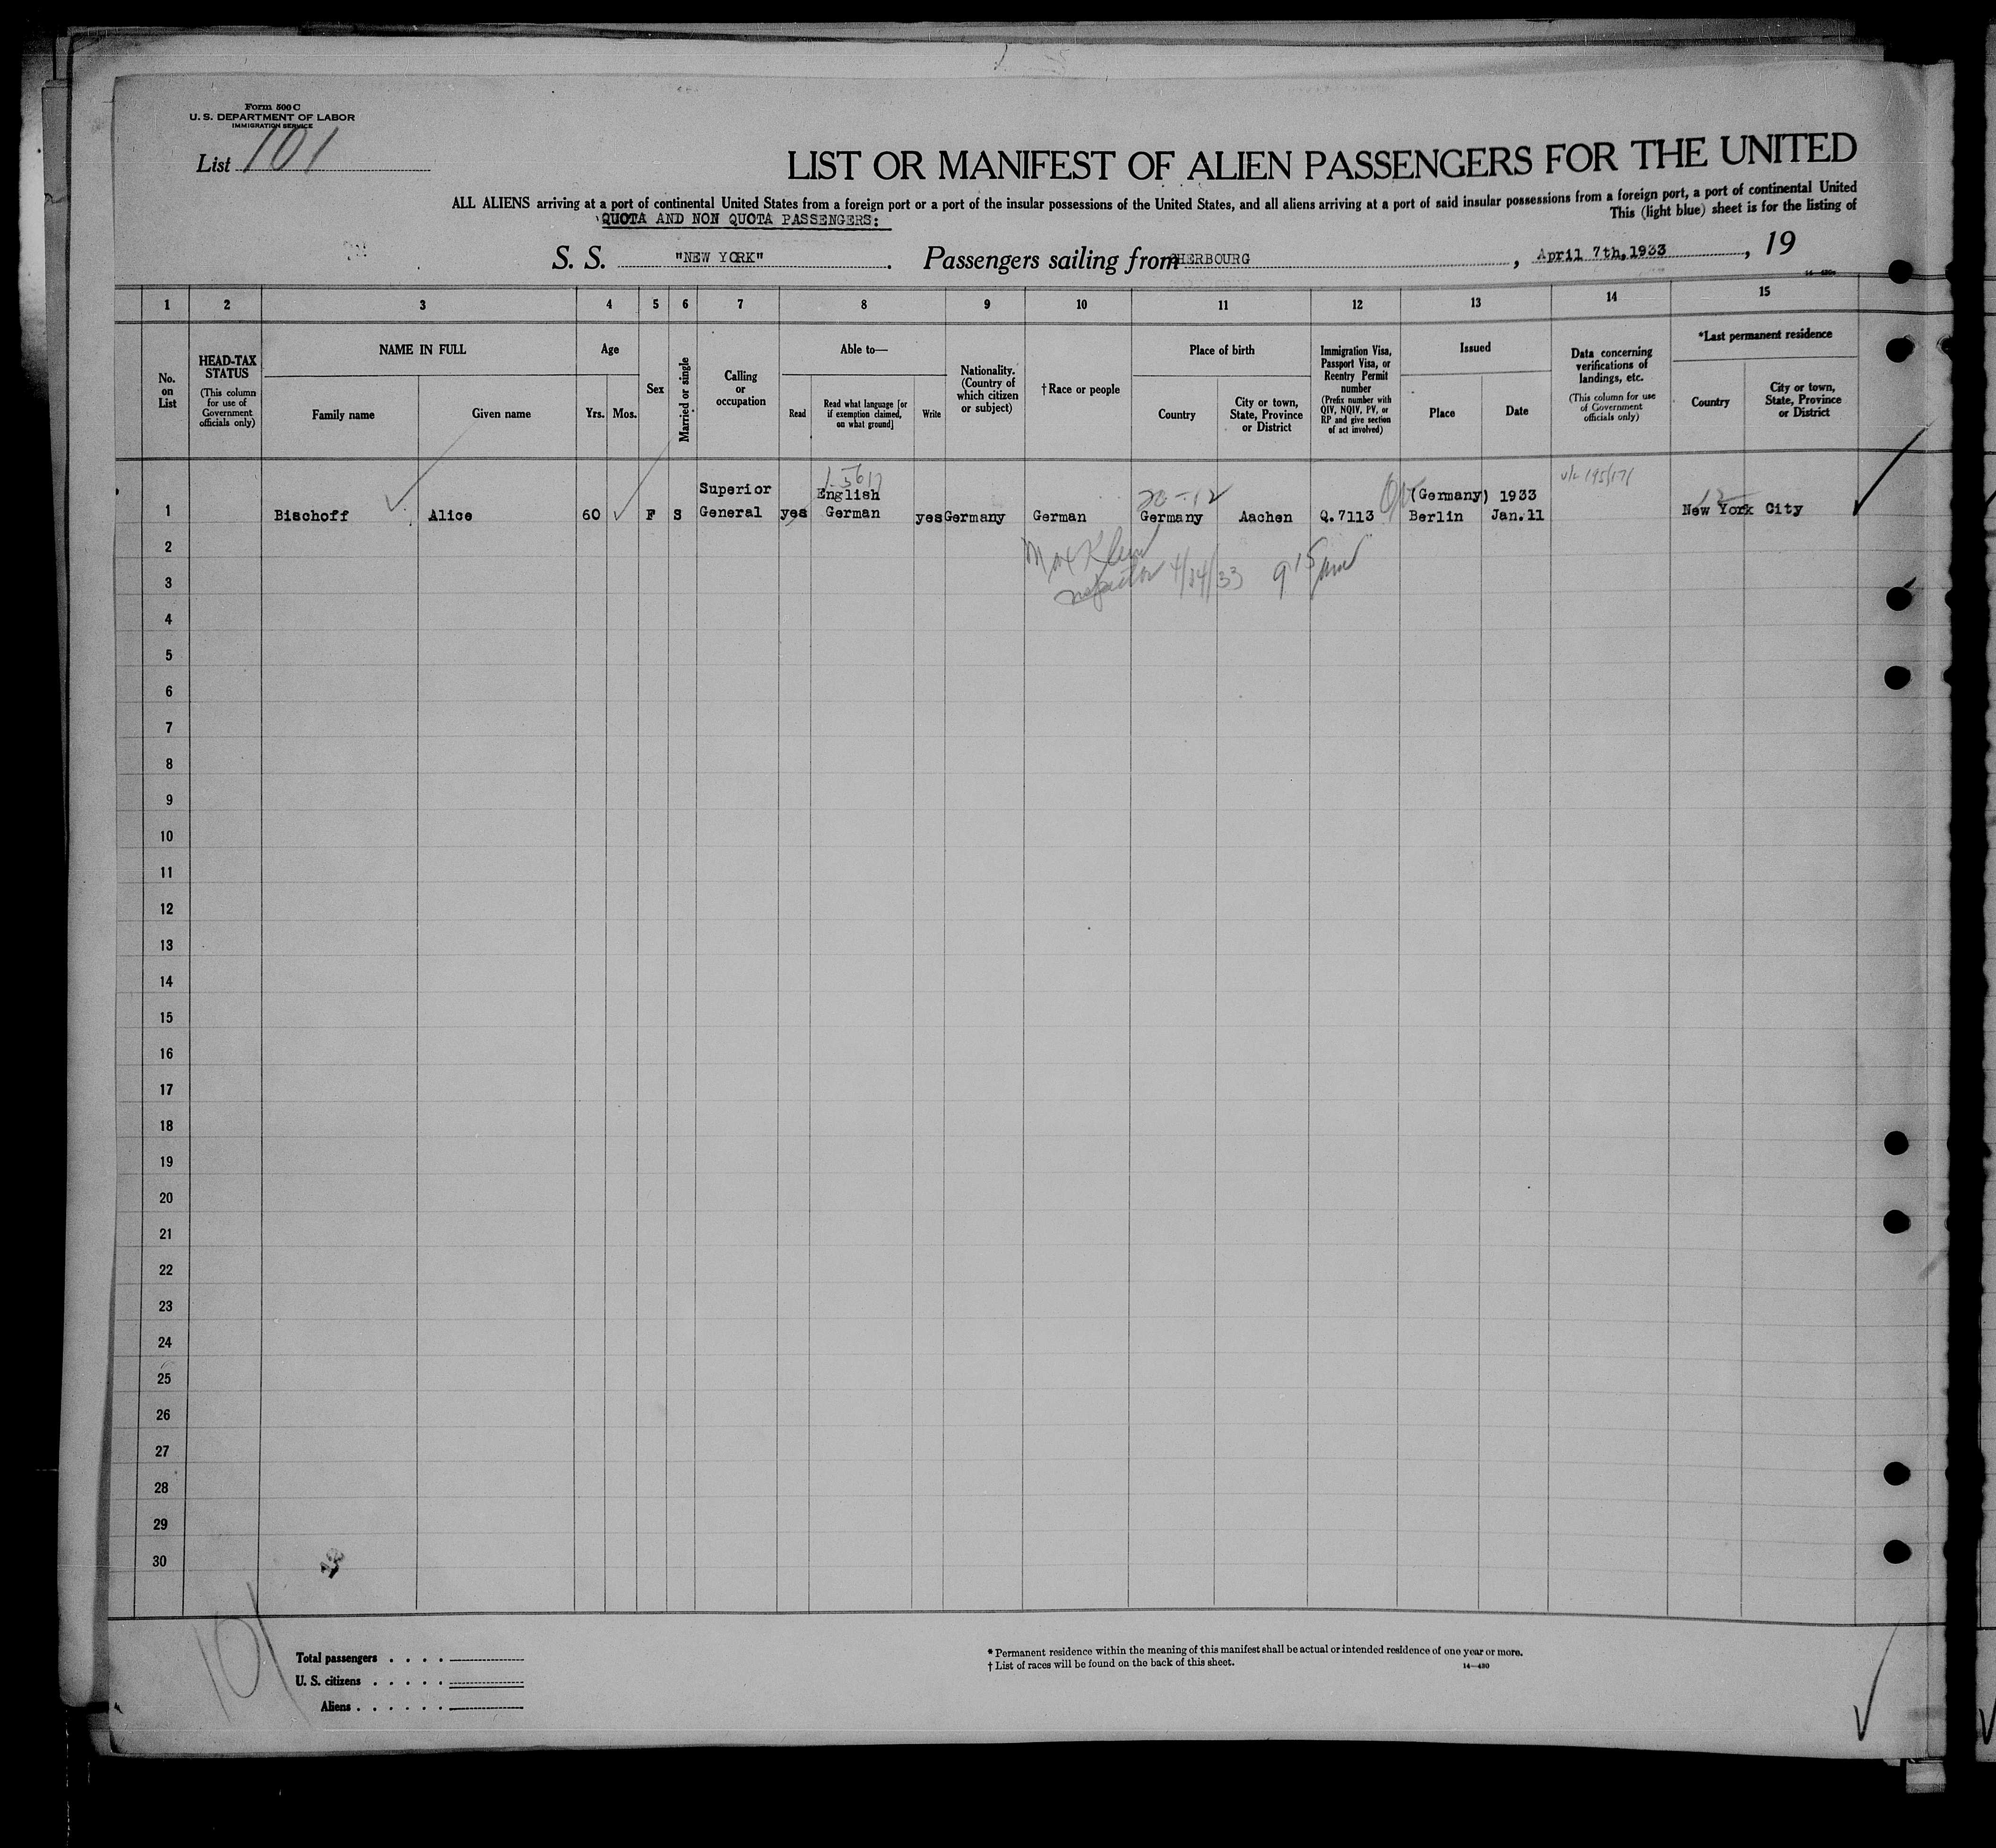 Form 500 C
U. S. DEPARTMENT OF LABOR
IMMIGRATION SERVICE
List 101
LIST OR MANIFEST OF ALIEN PASSENGERS FOR THE UNITED
ALL ALIENS arriving at a port of continental United States from a foreign port or a port of the insular possessions of the United States, and all aliens arriving at a port of said insular possessions from a foreign port, a port of continental United
QUOTA AND NON QUOTA PASSENGERS:
This (light blue) sheet is for the listing of
S. S. "NEW YORK". Passengers sailing from CHERBOURG, April 7th,1933, 19
14—430
1 2 3 4 5 6 7 8 9 10 11 12 13 14 15
No. on List
HEAD-TAX STATUS
(This column for use of Government officials only)
NAME IN FULL
Family name
Given name
Age
Yrs.
Mos.
Sex
Married or single
Calling or occupation
Able to—
Read
Read what language [or if exemption claimed, on what ground]
Write
Nationality. (Country of which citizen or subject)
†Race or people
Place of birth
Country
City or town, State, Province or District
Immigration Visa, Passport Visa, or Reentry Permit number
(Prefix number with QIV, NQIV, PV, or RP and give section of act involved)
Issued
Place
Date
Data concerning verifications of landings, etc.
(This column for use of Government officials only)
*Last permanent residence
Country
City or town, State, Province or District
1 Bischoff Alice 60 F S Superior General yes English German yes Germany German Germany Aachen Q.7113 (Germany) Berlin 1933 Jan.11 New York City
20-12
Max Klein
Inspector 4/14/33 9 15 am
2
3
4
5
6
7
8
9
10
11
12
13
14
15
16
17
18
19
20
21
22
23
24
25
26
27
28
29
30
101
Total passengers . . . .
U. S. citizens . . . . .
Aliens . . . . . .
* Permanent residence within the meaning of this manifest shall be actual or intended residence of one year or more.
† List of races will be found on the back of this sheet.
14—430